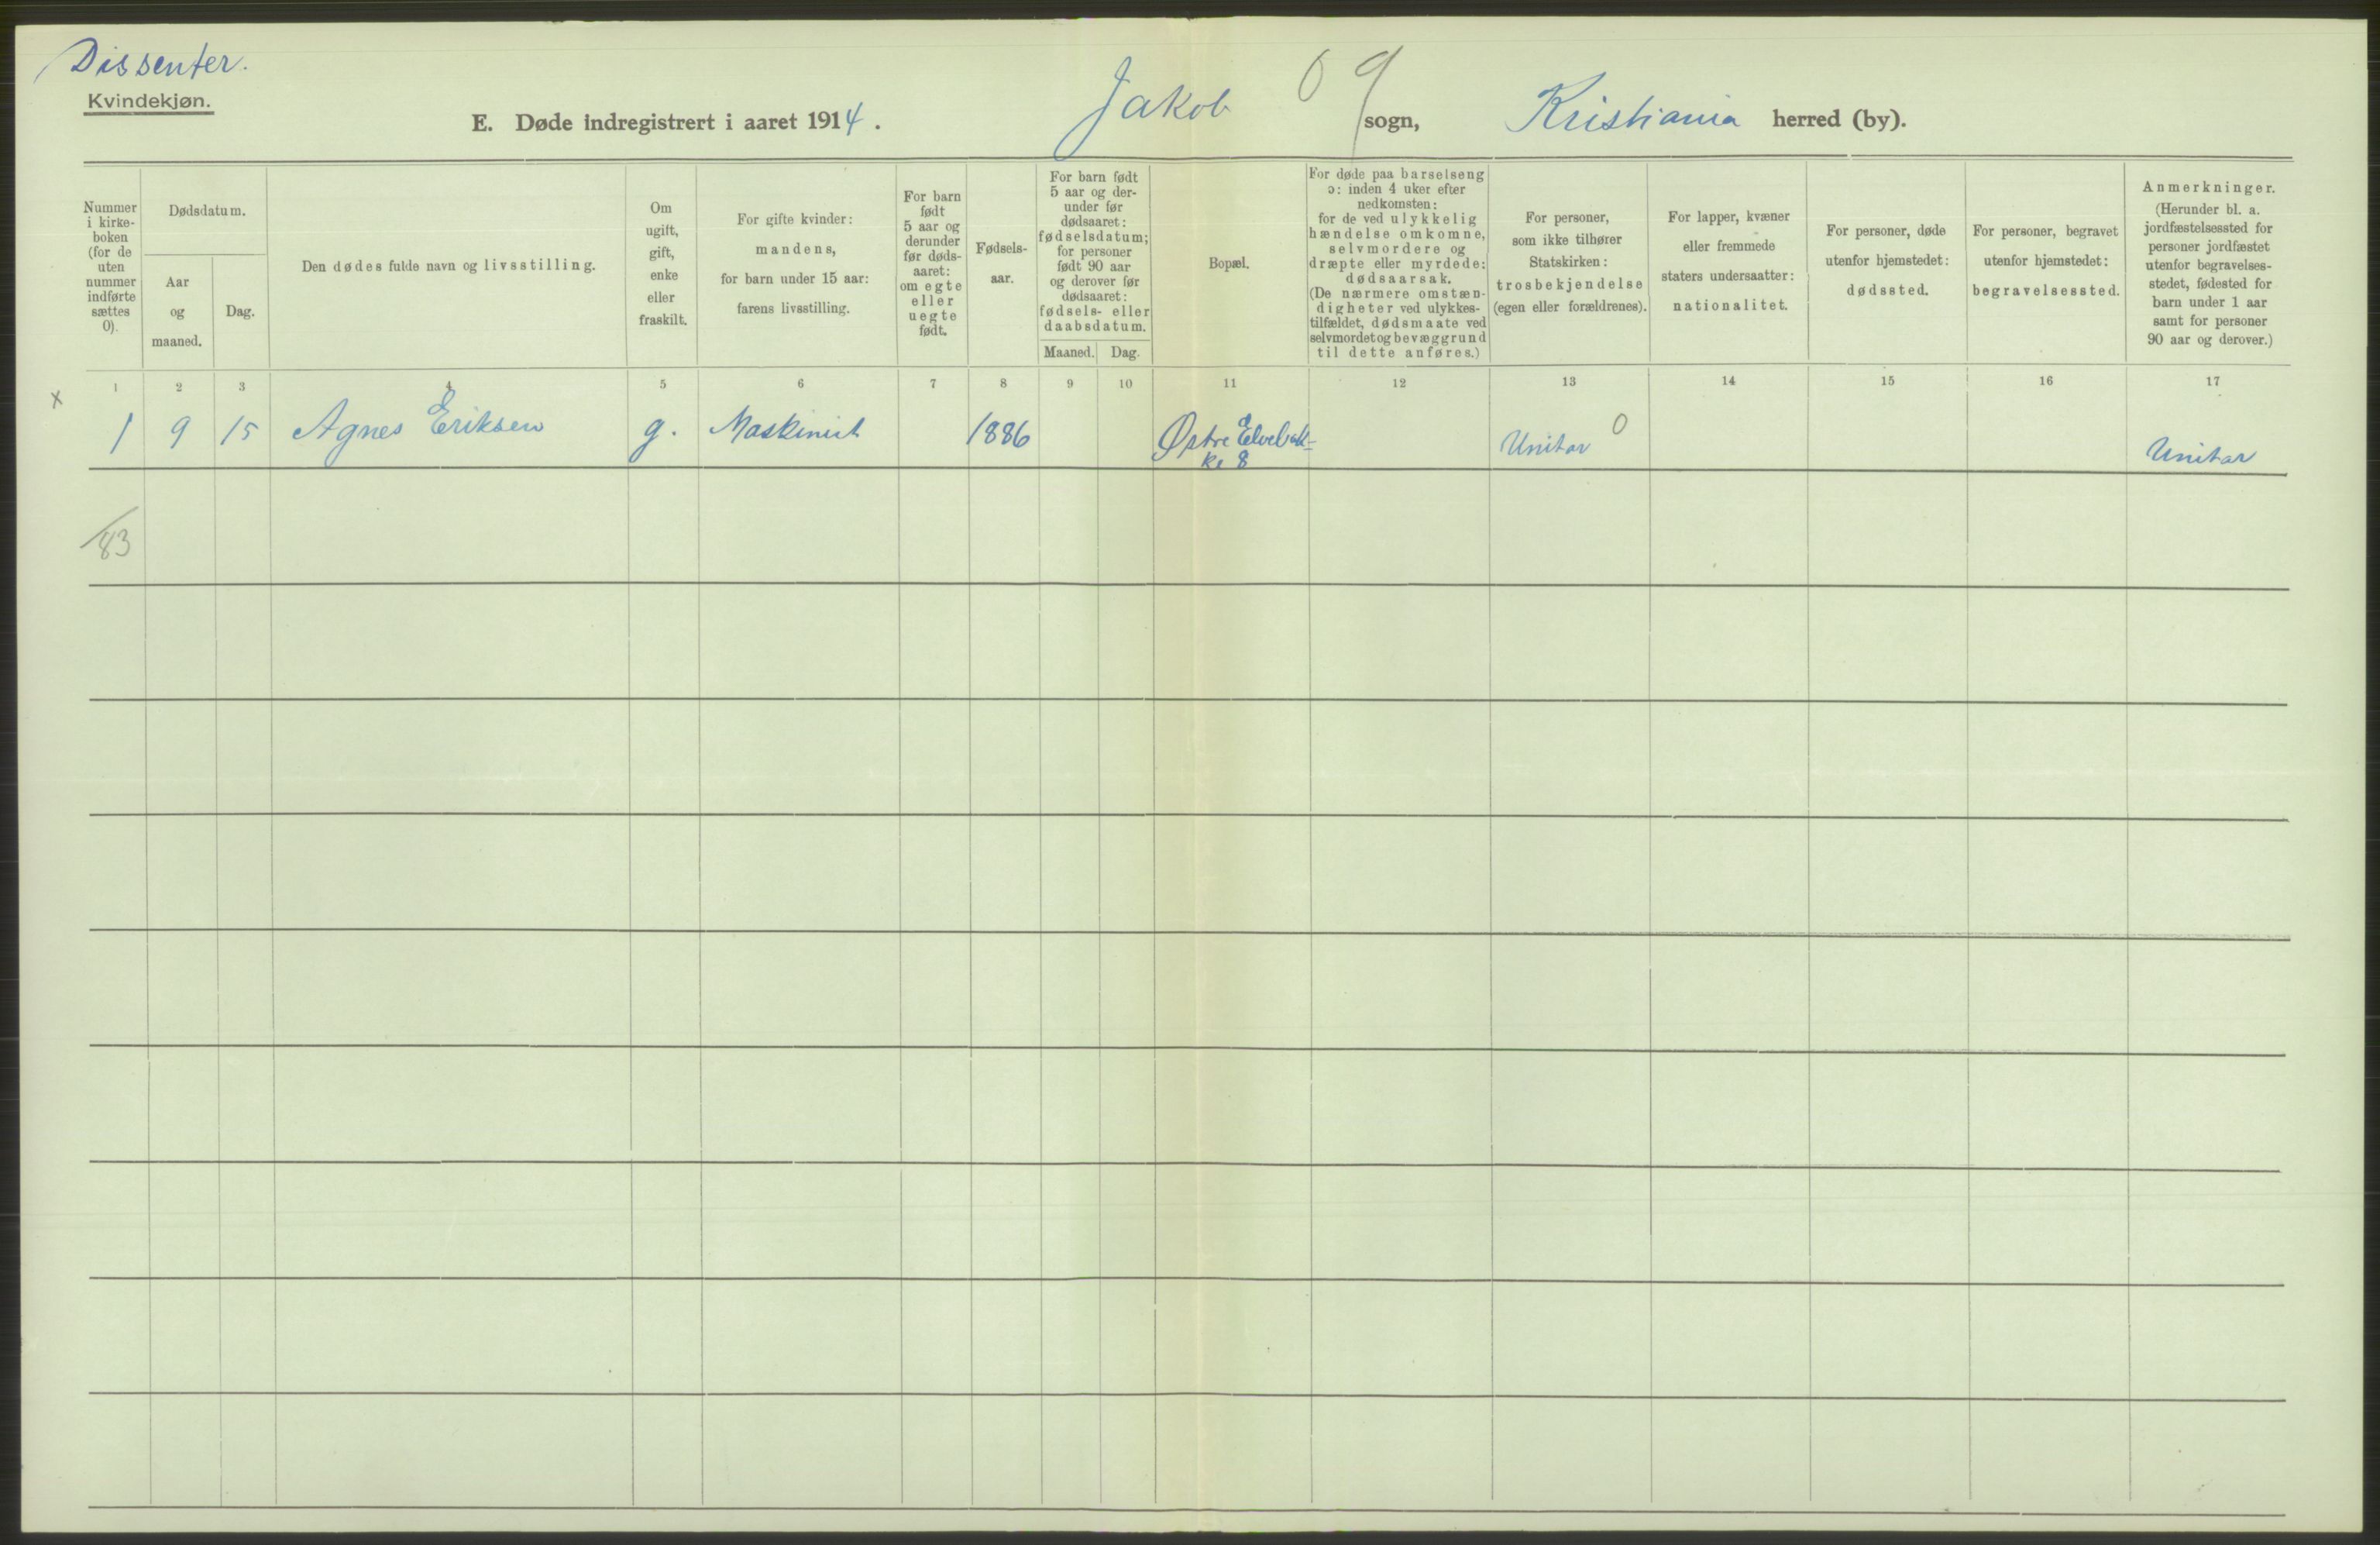 Dissenter.
Kvindekjøn.
E. Døde indregistrert i aaret 1914.
Jakob
0 9
sogn,
Kristiania
herred (by).
Nummer
i kirke-
boken
(for de
uten
nummer
indførte
sættes
0).
Dødsdatum.
Aar
og
maaned.
Dag.
Den dødes fulde navn og livsstilling.
Om
ugift,
gift,
enke
eller
fraskilt.
For gifte kvinder:
mandens,
for barn under 15 aar:
farens livsstilling.
For barn
født
5 aar og
derunder
før døds-
aaret:
om egte
eller
uegte
født.
Fødsels-
aar.
For barn født
5 aar og der-
under før
dødsaaret:
fødselsdatum;
for personer
født 90 aar
og derover før
dødsaaret:
fødsels- eller
daabsdatum.
Maaned.
Dag.
Bopæl.
For døde paa barselseng
ɔ: inden 4 uker efter
nedkomsten:
for de ved ulykkelig
hændelse omkomne,
selvmordere og
dræpte eller myrdede:
dødsaarsak.
(De nærmere omstæn-
digheter ved ulykkes-
tilfældet, dødsmaate ved
selvmordet og bevæggrund
til dette anføres.)
For personer,
som ikke tilhører
Statskirken:
trosbekjendelse
(egen eller forældrenes).
For lapper, kvæner
eller fremmede
staters undersaatter:
nationalitet.
For personer, døde
utenfor hjemstedet:
dødssted.
For personer, begravet
utenfor hjemstedet:
begravelsessted.
Anmerkninger.
(Herunder bl. a.
jordfæstelsessted for
personer jordfæstet
utenfor begravelses-
stedet, fødested for
barn under 1 aar
samt for personer
90 aar og derover.)
1 2 3 4 5 6 7 8 9 10 11 12 13 14 15 16 17
x 1 9 15 Agnes Eriksen g. Maskinist 1886 Østre Elvebak-
ke 8
Unitar 0
Unitar
83